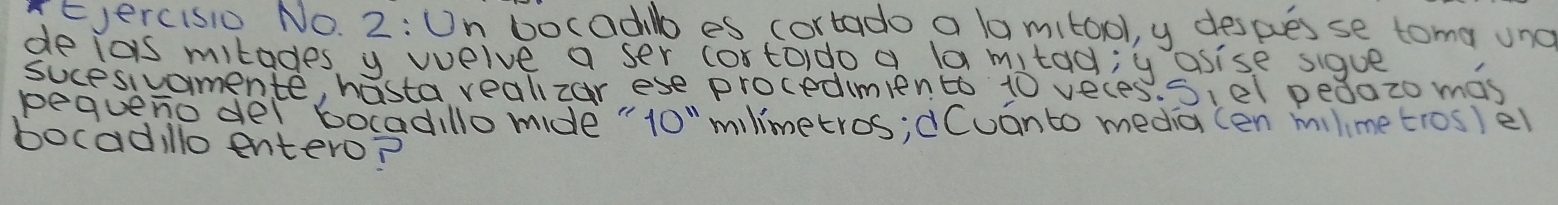 *Ejercisio No. 2: Un bocadillo es cortado a la mitad, y después se toma una
de las mitades y vuelve a ser cortado a la mitad; y asíse sigue
sucesivamente, hasta realizar ese procedimiento 10 veces. Si el pedazo más
pequeño del bocadillo mide "10" milímetros; ¿Cuánto media (en milimetros) el
bocadillo entero?